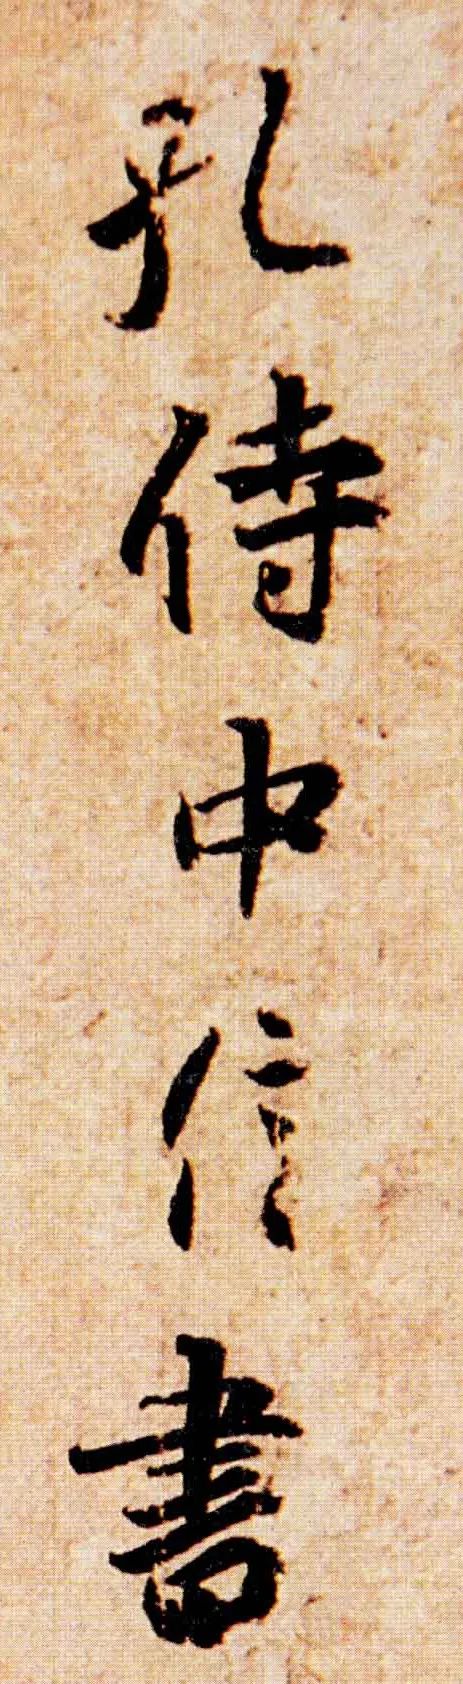 孔侍中信書